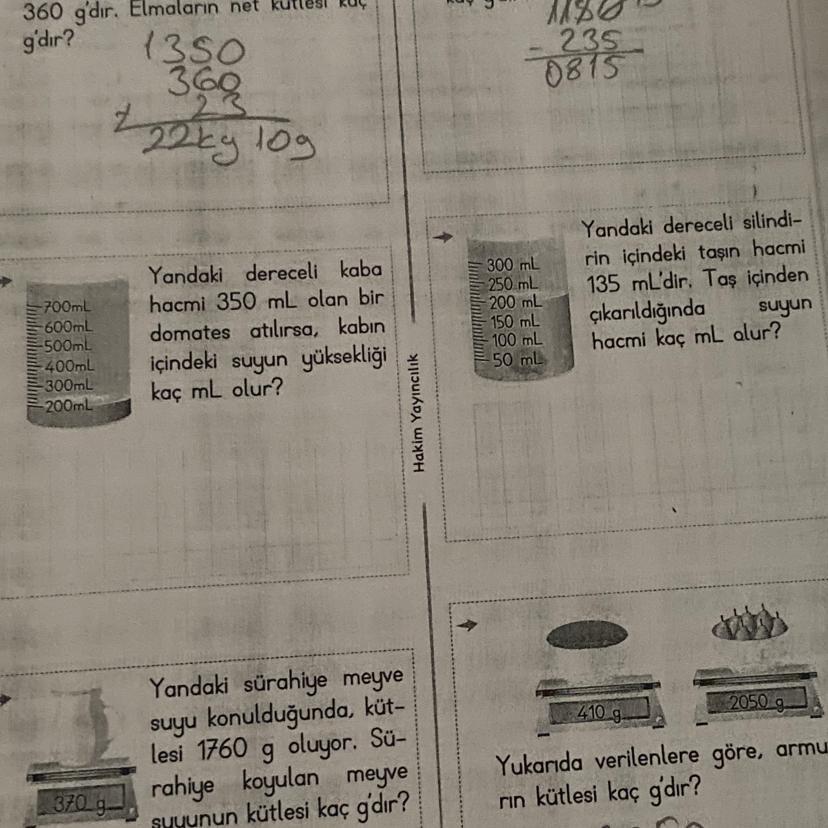 360 g'dır. Elmaların net kütlesi kaç
g'dır?
1350
360
+ 23
22kg 10g
1180
- 235
0815
Yandaki dereceli kaba
hacmi 350 mL olan bir
domates atılırsa, kabın
içindeki suyun yüksekliği
kaç mL olur?
700mL
600mL
500mL
400mL
300mL
200mL
Hakim Yayıncılık
Yandaki dereceli silindi-
rin içindeki taşın hacmi
135 mL'dir. Taş içinden
çıkarıldığında suyun
hacmi kaç mL olur?
300 mL
250 mL
200 mL
150 mL
100 mL
50 mL
Yandaki sürahiye meyve
suyu konulduğunda, küt-
lesi 1760 g oluyor. Sü-
rahiye koyulan meyve
suyunun kütlesi kaç g'dır?
370 g
410 g
2050 g
Yukarıda verilenlere göre, armu
rın kütlesi kaç g'dır?